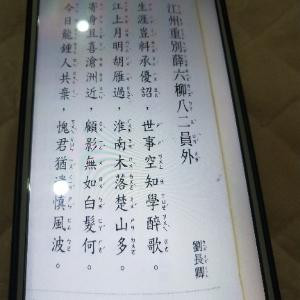 江州重別薛六柳八二員外
劉長卿
生涯豈料承優詔，世事空知學醉歌。
江上月明胡雁過，淮南木落楚山多。
寄身且喜滄洲近，顧影無如白髮何。
今日龍鍾人共棄，愧君猶遣慎風波。